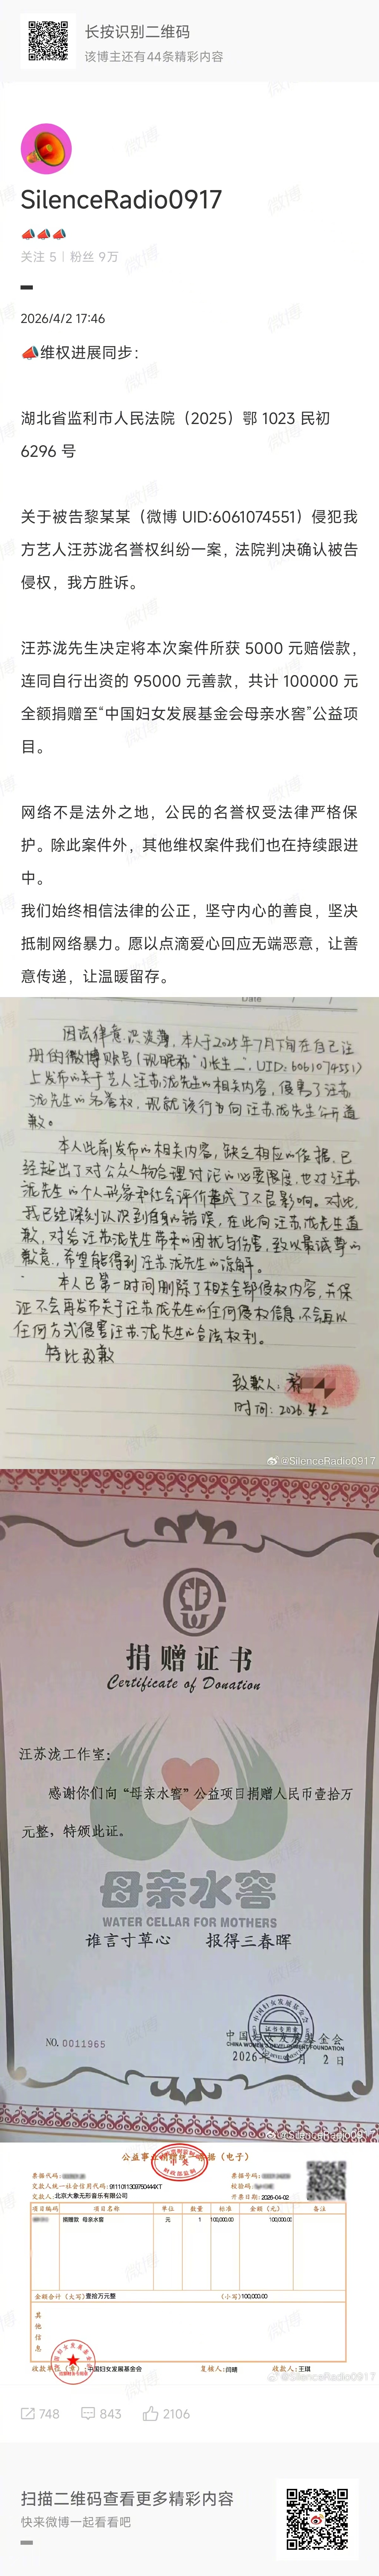 长按识别二维码
该博主还有44条精彩内容
SilenceRadio0917
📣📣📣
关注 5 | 粉丝 9万
2026/4/2 17:46
📣维权进展同步：
湖北省监利市人民法院（2025）鄂 1023 民初
6296 号
关于被告黎某某（微博 UID:6061074551）侵犯我
方艺人汪苏泷名誉权纠纷一案，法院判决确认被告
侵权，我方胜诉。
汪苏泷先生决定将本次案件所获 5000 元赔偿款，
连同自行出资的 95000 元善款，共计 100000 元
全额捐赠至“中国妇女发展基金会母亲水窖”公益项
目。
网络不是法外之地，公民的名誉权受法律严格保
护。除此案件外，其他维权案件我们也在持续跟进
中。
我们始终相信法律的公正，坚守内心的善良，坚决
抵制网络暴力。愿以点滴爱心回应无端恶意，让善
意传递，让温暖留存。
Date / /
因法律意识淡薄，本人于2025年7月下旬在自己注
册的微博账号（现昵称“小长生_”，UID：6061074551）
上发布的关于艺人汪苏泷先生的相关内容，侵害了汪苏
泷先生的名誉权，现就该行为向汪苏泷先生公开道
歉。
本人此前发布的相关内容，缺乏相应的依据，已
经超出了对公众人物合理讨论的必要限度，也对汪苏
泷先生的个人形象和社会评价造成了不良影响。对此，
我已经深刻认识到自身的错误，在此向汪苏泷先生道
歉，对给汪苏泷先生带来的困扰与伤害，致以最诚挚的
歉意，希望能得到汪苏泷先生的谅解。
本人已第一时间删除了相关全部侵权内容，并保
证不会再发布关于汪苏泷先生的任何侵权信息，不会再以
任何方式侵害汪苏泷先生的合法权利。
特此致歉
致歉人：黎
时间：2026.4.2
@SilenceRadio0917
捐赠证书
Certificate of Donation
汪苏泷工作室：
感谢你们向“母亲水窖”公益项目捐赠人民币壹拾万
元整，特颁此证。
母亲水窖
WATER CELLAR FOR MOTHERS
谁言寸草心 报得三春晖
NO. 0011965
中国妇女发展基金会
CHINA WOMEN'S DEVELOPMENT FOUNDATION
证书专用章
2026年 月 2日
公益事业捐赠统一票据（电子）
票据代码： 票据号码：
交款人统一社会信用代码：91110113097504444XT 校验码：
交款人：北京大象无形音乐有限公司 开票日期：2026-04-02
项目编码 项目名称 单位 数量 标准 金额（元） 备注
捐赠款 母亲水窖 元 1 100,000.00 100,000.00
金额合计（大写）壹拾万元整 （小写）100,000.00
其他信息
收款单位（章）：中国妇女发展基金会 复核人：闫晴 收款人：王琪
@SilenceRadio0917
748 843 2106
扫描二维码查看更多精彩内容
快来微博一起看看吧